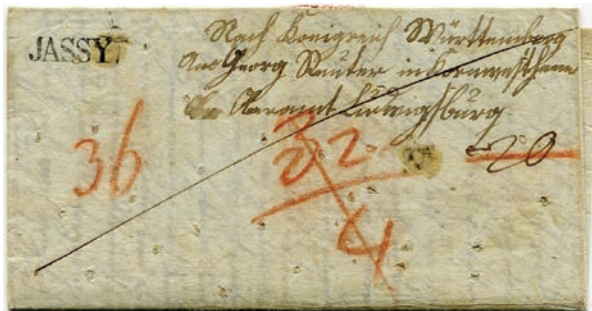 JASSY
Nach Königreich Württemberg
Georg Reuter in Kornwestheim
Oberamt Ludwigsburg
36
32
4
20